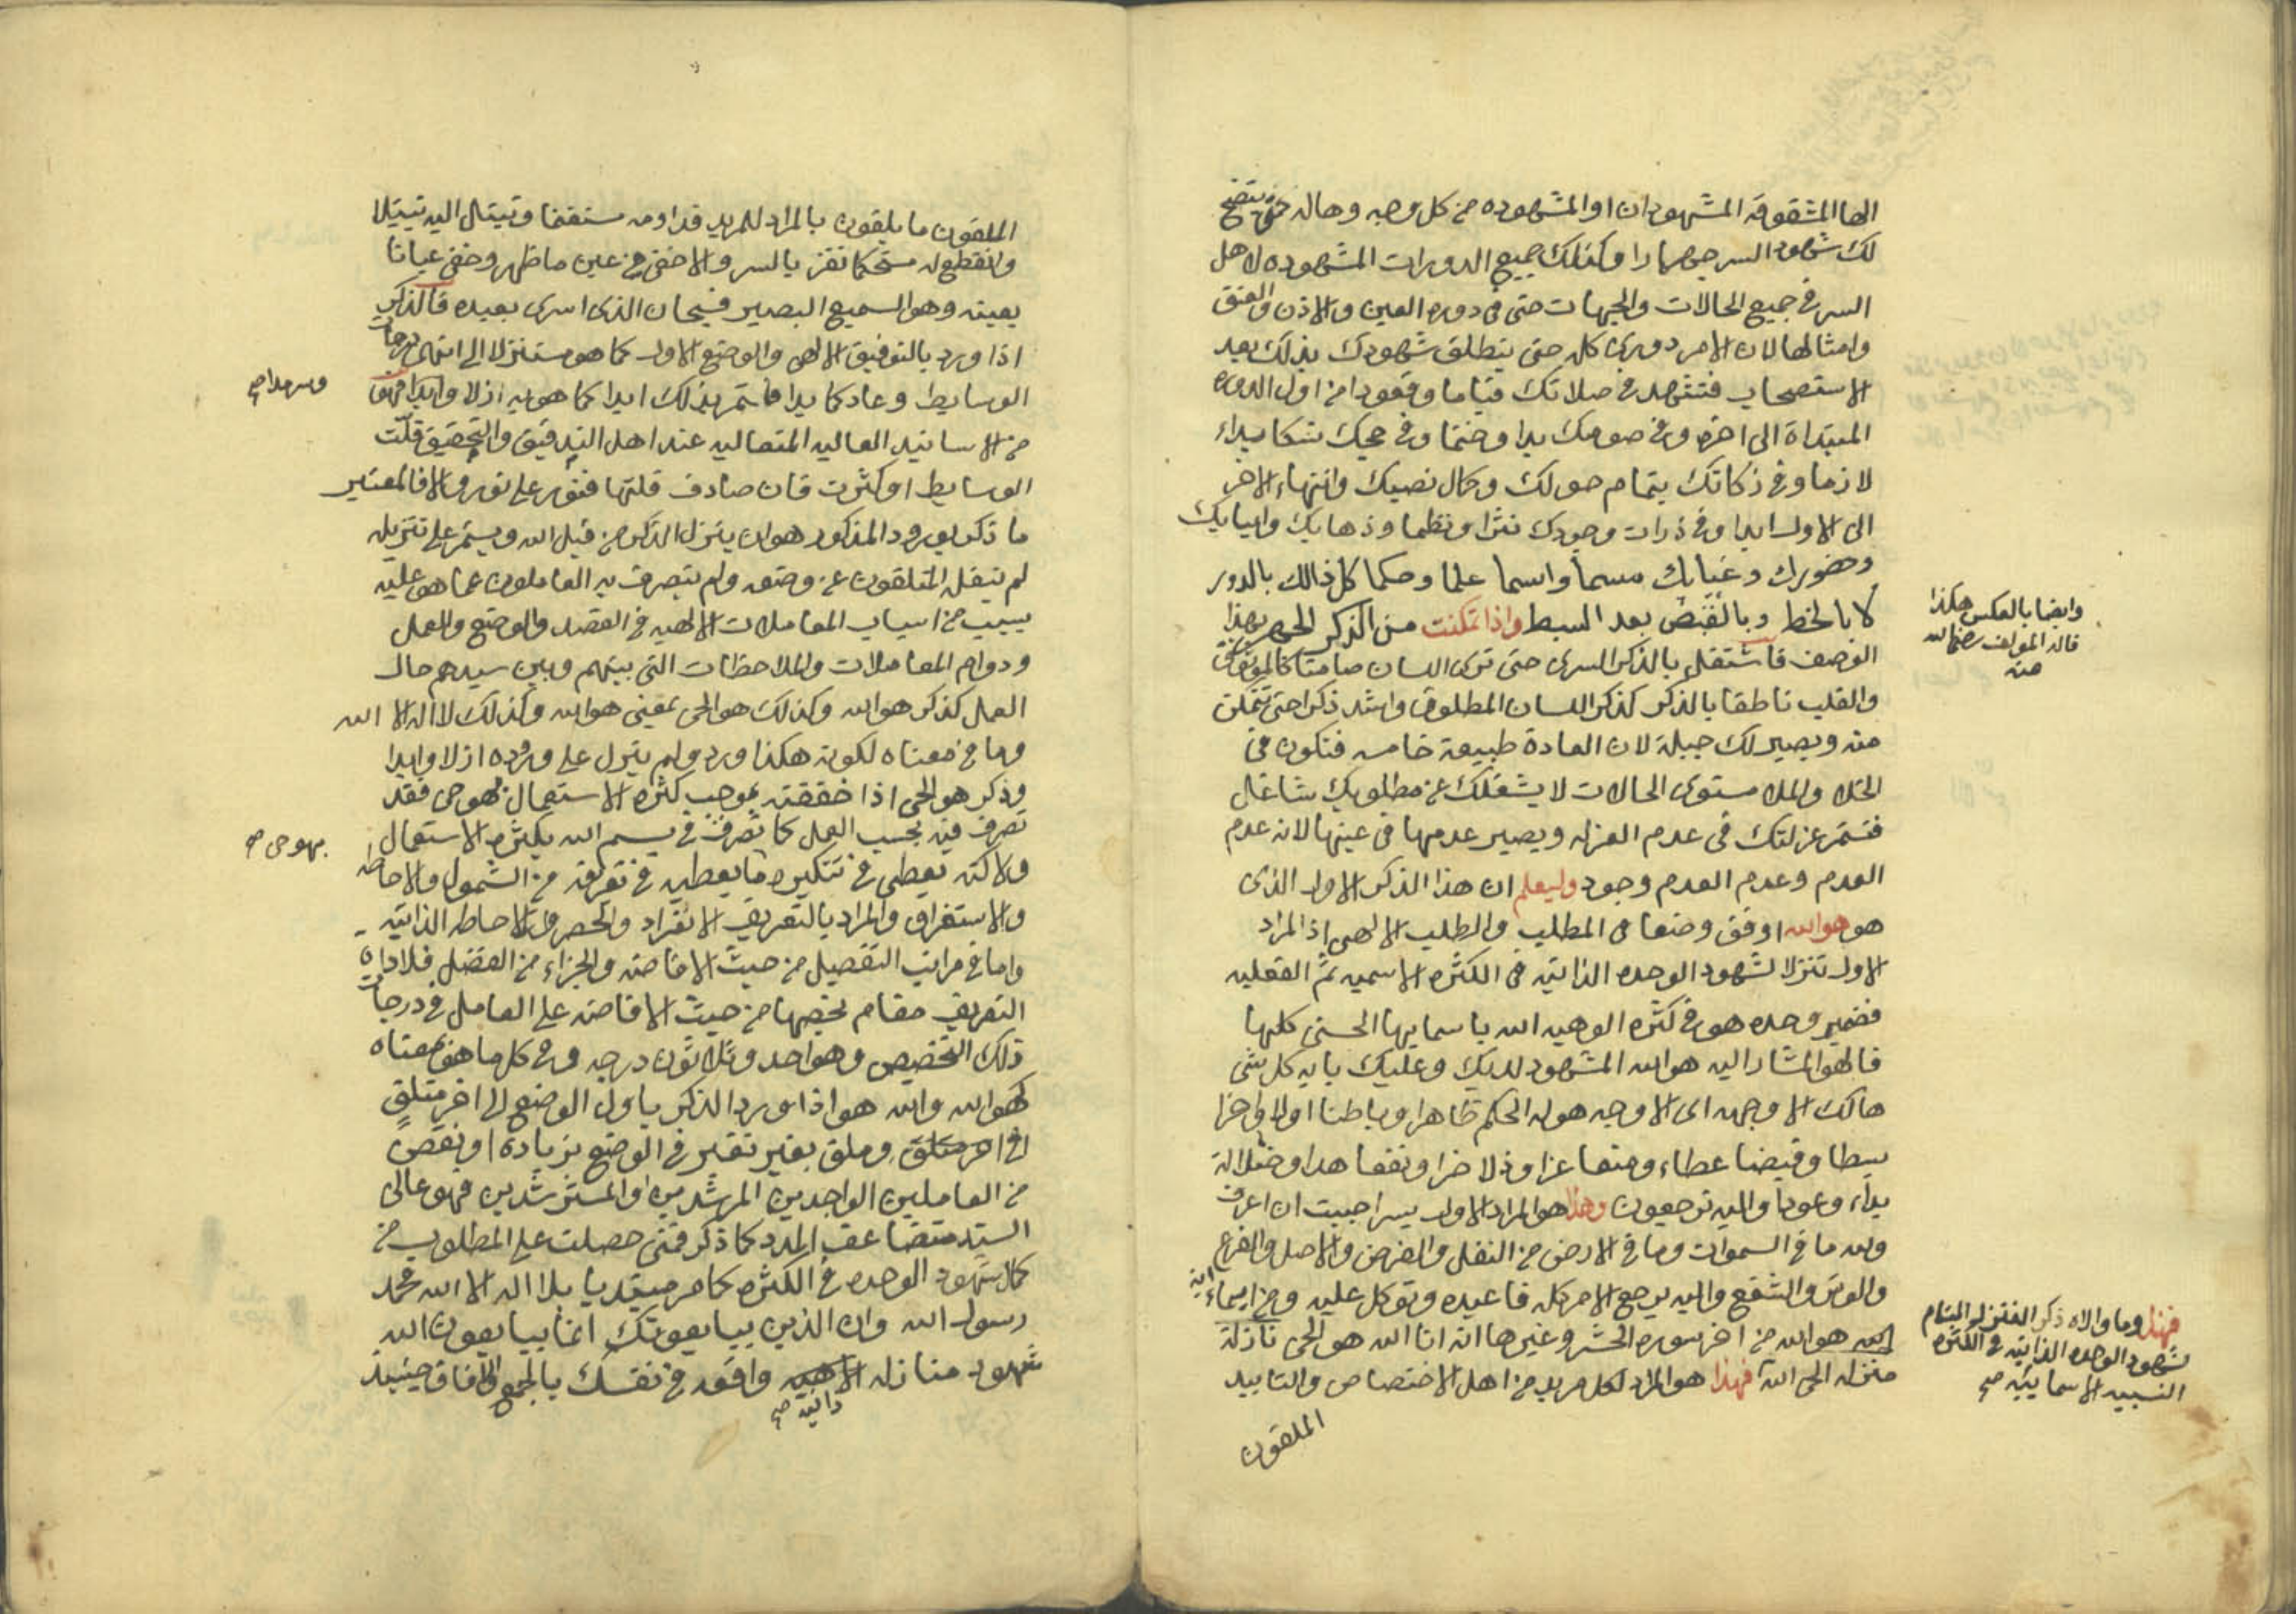 الها المشقوقه المشهودان او المشهوده من كل وجه وحاله حتى يتضح
لك شهود السر جهارا وكذلك جميع الدورات المشهوده لاهل
السر في جميع الحالات والجهات حتى في دوره العين والاذن والعنق
وامثالها لان الامر دورى كله حتى ينطلق شهودك بذلك بعد
الاستصحاب فتشهد في صلاتك قياما وقعودا من اول الدوره
المبتداة الى اخره وفي صومك بدا وختما وفي حجك نسكا بداء
لازما وفي زكاتك بتمام حولك وكمال نصبك وانتهاء الاخر
الى الاول ابدا وفي ذرات وجودك نثرا ونظما وذهابك وايابك
وحضورك وغيابك مسما واسما علما وحكما كل ذالك بالدور
لا بالخط وبالقبض بعد البسط واذا تمكنت من الذكر الجهر بهذا
الوصف فاشتغل بالذكر السرى حتى ترى اللسان صامتا كالموثوق
والقلب ناطقا بالذكر كذكر اللسان المطلوق واشد ذكرا حتى تتمكن
منه ويصير لك جبلة لان العادة طبيعة خامسه فتكون في
الخلا والملا مستوى الحالات لا يشغلك عن مطلوبك شاغل
فتستمر عزلتك في عدم العزله ويصير عدمها في عينها لانه عدم
العدم وعدم العدم وجود وليعلم ان هذا الذكر الاول الذى
هو هو الله اوفق وضعا في المطلب والطلب الالهى اذ المراد
الاول تنزلا لشهود الوحده الذاتيه في الكثره الاسميه ثم الفعليه
فضمير وحده هو في كثره الوهيه الله باسمايها الحسنى كلها
فالهو المشار اليه هو الله المشهود لديك وعليك بايه كل شى
هالك الا وجهه اى الا وجه هو له الحكم ظاهرا وباطنا اولا واخرا
بسطا وقبضا عطاء ومنعا عزا وذلا ضرا ونفعا هدا وضلالة
بداء وعودا واليه ترجعون وهذا هو المراد الاول بسر احببت ان اعرف
ولله ما في السموات وما في الارض من النفل والفرض والاصل والفرع
والوتر والشفع واليه يرجع الامر كله فاعبده وتوكل عليه ومن ايماء اية
الله هو الله من اخر سوره الحشر وغيرها انه انا الله هو الحى نازلة
منزله الحى الله فهذا هو المراد لكل مريد من اهل الاختصاص والتاييد
الملقون
وايضا بالعكس هكذا
قاله المولف رضى الله
عنه
فهذا وما والاه ذكر
لشهود الوحده الذاتيه في الكثره
النسبيه الاسماييه صح
الملقون ما يلقون بالمراد للمريد فداومه مستقما وتبتل اليه تبتيلا
وانقطع له مستحكما تفز بالسر والاخفى من عين ما ظهر وخفى عيانا
بعينه وهو السميع البصير فسبحان الذى اسرى بعبده فالذكر
اذا ورد بالتوفيق الالهى والوضع الاول كما هو مستنزلا الى انتهى درجات
الوسايط وعاد كما بدا فاستمر بذلك ابدا كما هو به ازلا وابدا فهو
من الاسانيد العاليه المتعاليه عند اهل التدقيق والتحقيق قلت
الوسايط او كثرت فان صادف قلتها فنور على نور والا فالمعتبر
ما ذكر بورود المذكور هو ان ينزل الذكر من قبل الله ويستمر على تنزيله
لم ينقل المتلقون عن وضعه ولم يتصرف به العاملون عما هو عليه
بسبب من اسباب المعاملات الالهيه في القصد والوضع والعمل
ودوام المعاملات والملاحظات التى بينهم وبين سيدهم حال
العمل كذكر هو الله وكذلك هو الحى بمعنى هو الله وكذلك لا اله الا الله
وما في معناه لكونه هكذا ورد ولم يزل على وروده ازلا وابدا
وذكر هو الحى اذا خففته بموجب كثره الاستعمال هو حى فقد
تصرف فيه بحسب العمل كما تصرف في بسم الله بكثره الاستعمال
ولاكنه يعطى في تنكيره ما يعطيه في تعريفه من الشمول والاحاطه
والاستغراق والمراد بالتعريف الانفراد والحصر والاحاطه الذاتيه
واما في مراتب التفصيل من حيث الافاضه والجزاء من الفضل فلاداه
التعريف مقام يخصها من حيث الافاضه على العامل في درجات
ذلك التخصيص وهو احد وثلاثون درجه وفي كل ما هو بمعناه
كهو الله والله هو اذا ورد الذكر باول الوضع الى اخر متلق
وملق بغير تغير في الوضع بزيادة او نقص
من العاملين الواجدين المرشدين او المسترشدين فهو عالى
السند كما ذكر فمتى حصلت على المطلوب من
كمال شهود الوحده في الكثره كما مر مبتديا بلا اله الا الله محمد
رسول الله وان الذين يبايعونك انما يبايعون الله
شهود منازله الاهيه وافقه في نفسك بالجمع والافاق حينيذ
ذاتيه صح
وسرمدا صح
بهو حى صح